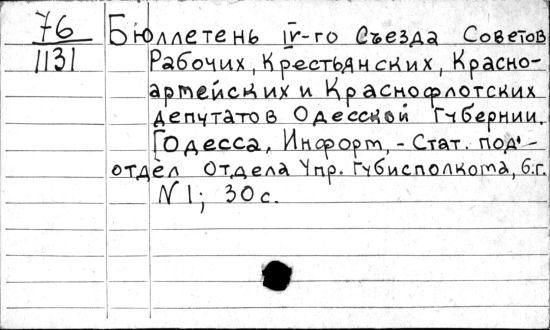 76 Бюллетень IV-го Съезда Советов
1131 Рабочих, Крестьянских, Красно-
армейских и Краснофлотских
депутатов Одесской Губернии.
Годесса, Информ,-Стат. под'-
отдел Отдела Упр. Губисполкома, б.г.
N 1; 30 с.